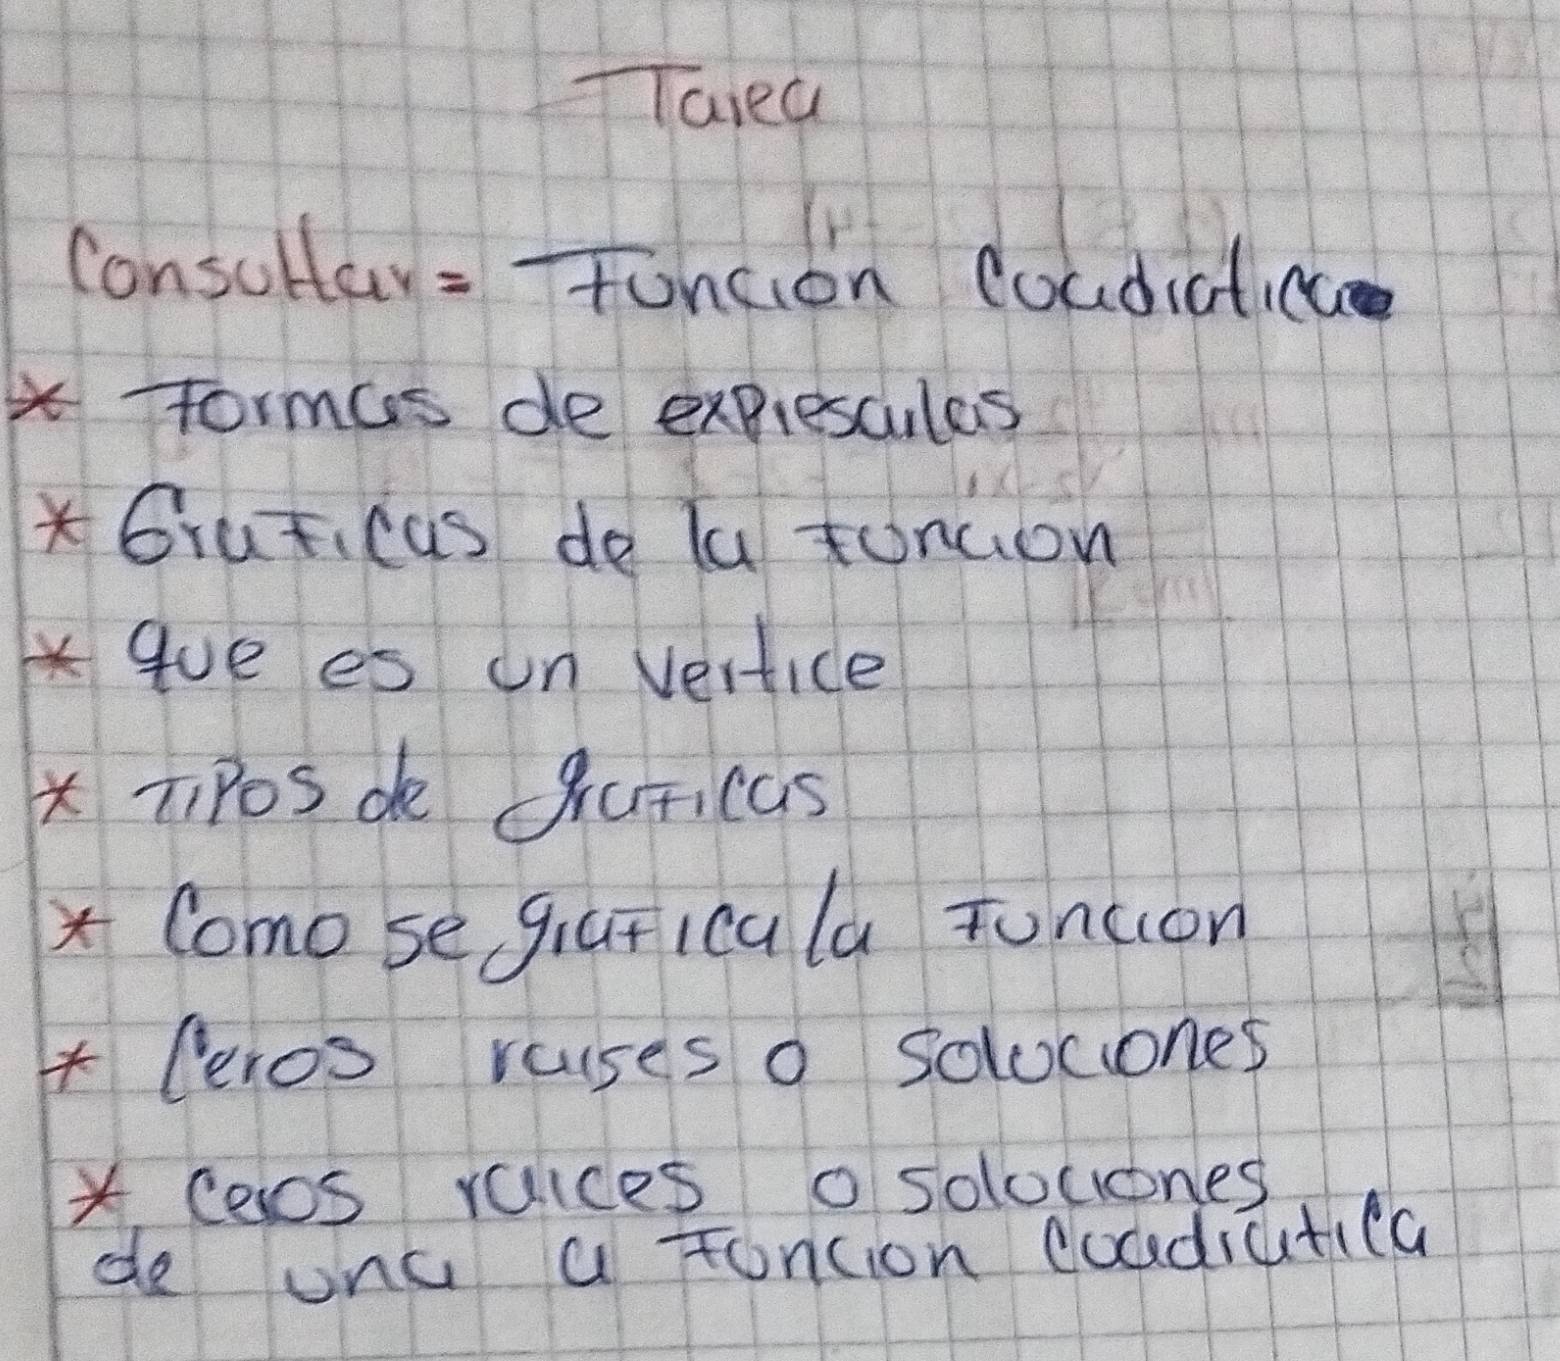 Tarea
Consultar = Función Cuadratica
* Formas de expresarlas
* Graficas de la funcion
* que es un vertice
* Tipos de graficas
* Como se grafica la funcion
* Ceros raises o soluciones
* ceros raices o soluciones
de una a funcion cuadratica